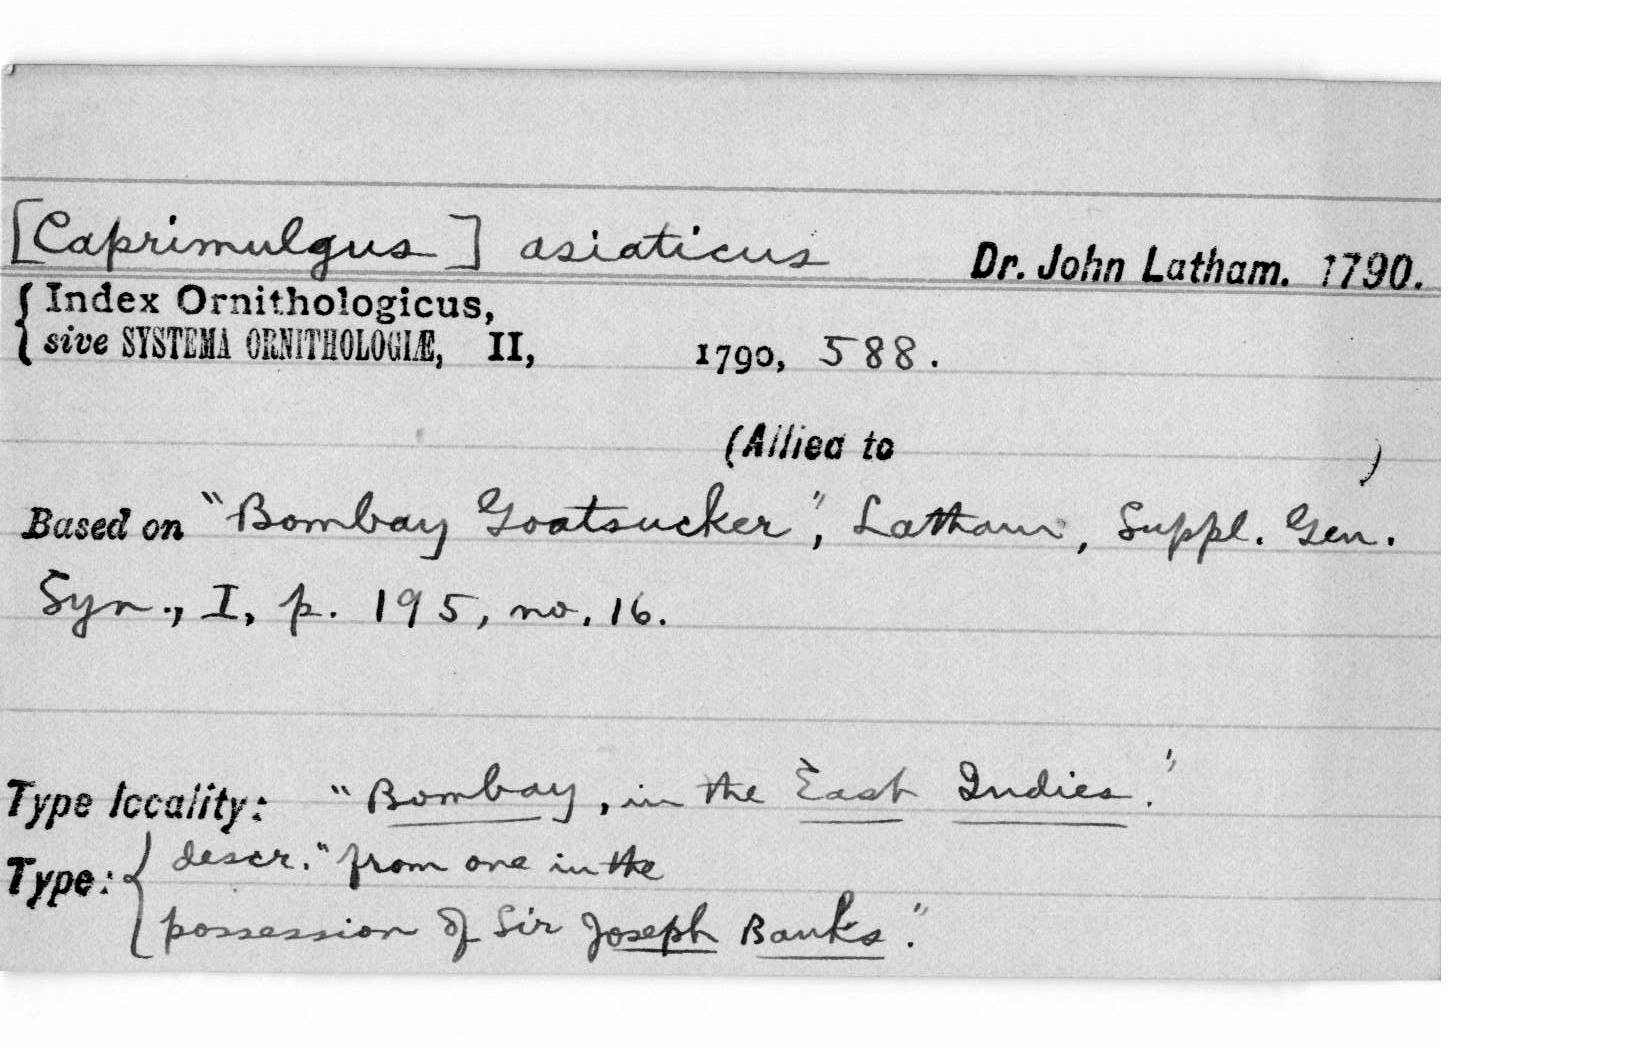 [Caprimulgus] asiaticus Dr. John Latham. 1790.
Index Ornithologicus,
sive SYSTEMA ORNITHOLOGIÆ, II, 1790, 588.
(Allied to )
Based on "Bombay Goatsucker", Latham, Suppl. Gen.
Syn., I, p. 195, no. 16.
Type locality: "Bombay, in the East Indies."
Type: descr. "from one in the
possession of Sir Joseph Banks."